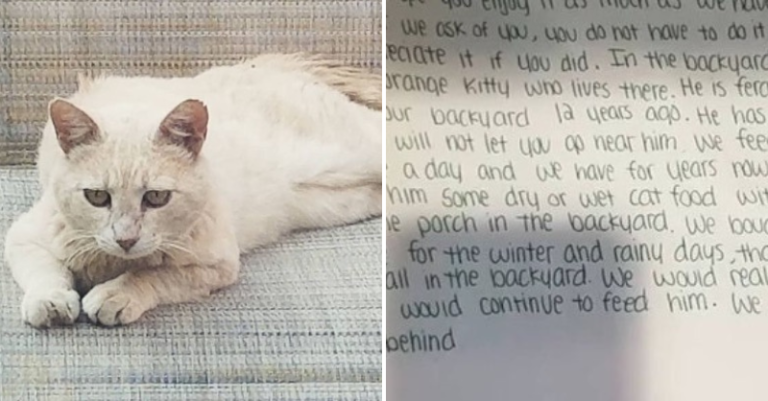 you enjoy it as much as we have
we ask of you, you do not have to do it
eciate it if you did. In the backyard
orange Kitty who lives there. He is fera
our backyard 12 years ago. He has
will not let you go near him. We fee
a day and we have for years now
him some dry or wet cat food wit
e porch in the backyard. We boug
for the winter and rainy days, tha
all in the backyard. We would real
would continue to feed him. We
behind